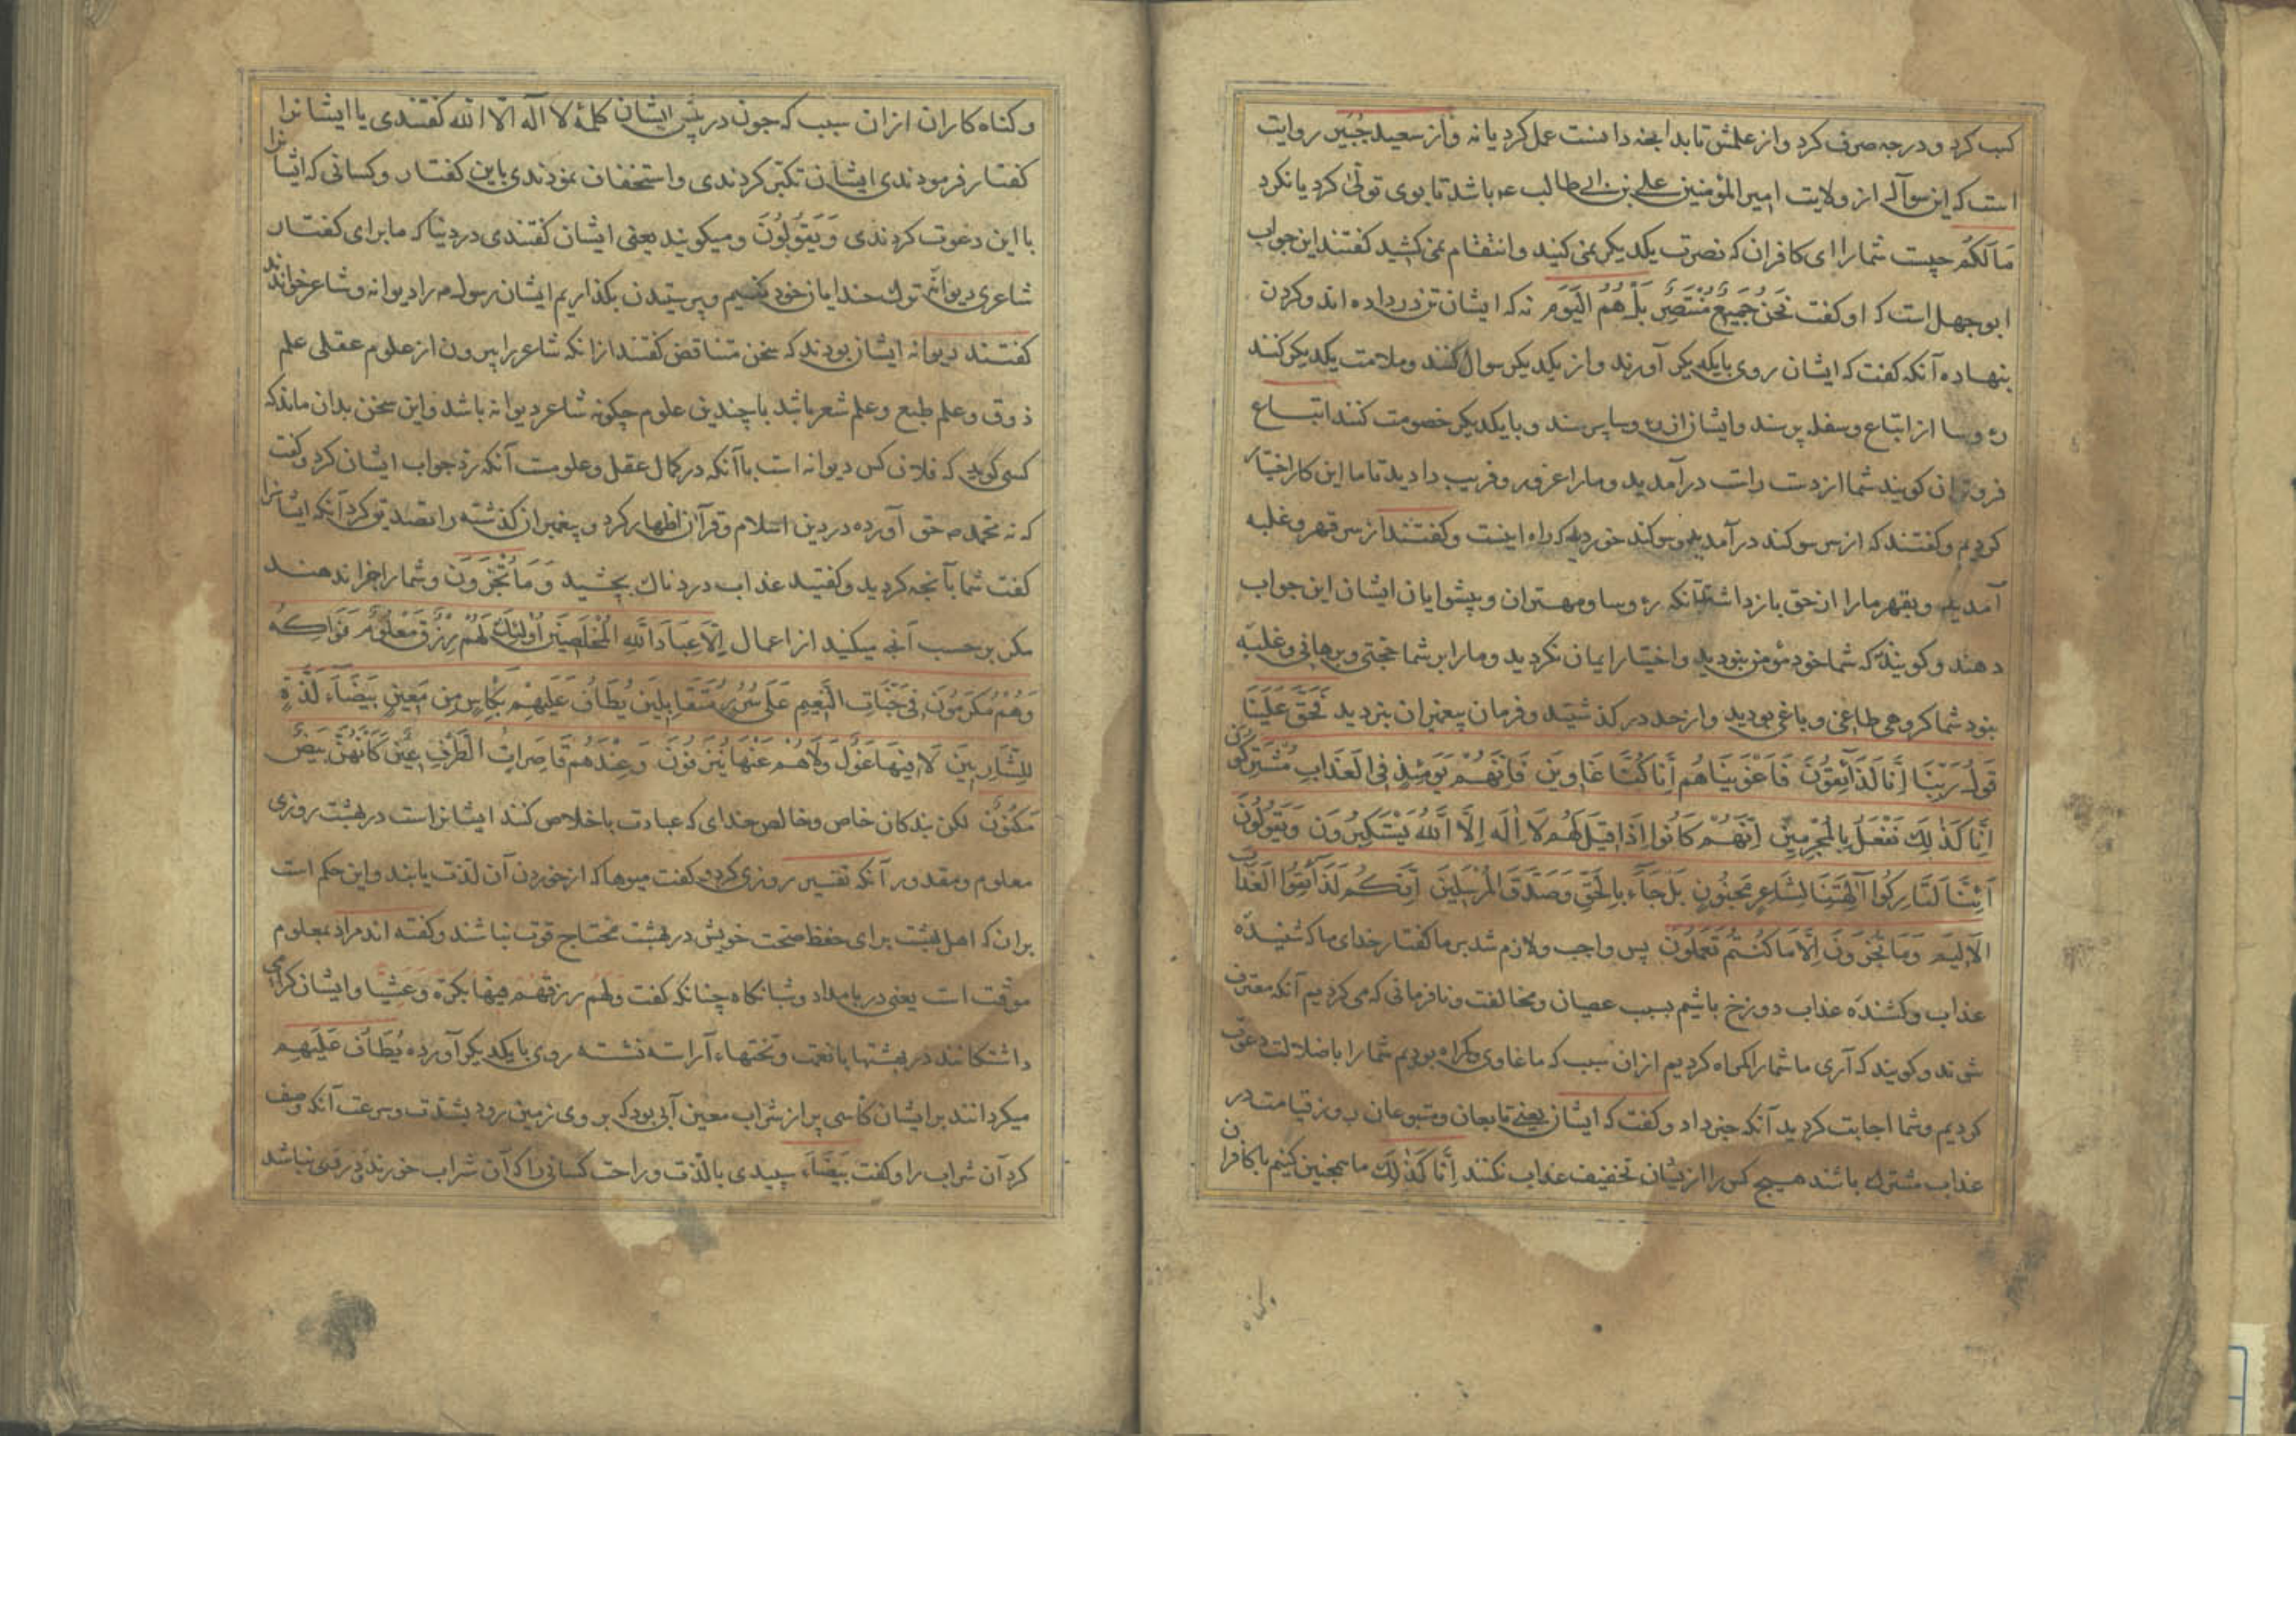 کسب کرد و در چه صرف کرد و از علمش تا بدانچه دانست عمل کرد یا نه و از سعید جُبَیر روایت
است که این سوآل از ولایت امیر المؤمنین علی بن ابی طالب عه باشد تا بوی تولّی کرد یا نکرد
مَا لَکُم چیست شما را ای کافران که نصرت یکدیکر نمی کنید و انتقام نمی کشید کفتند این جواب
ابوجهل است که او کفت نَحنُ جَمِیعٌ مُنْتَصِرٌ بَلْ هُمُ الیَومَ نه که ایشان تن در داده اند و کردن
بنهاده آنکه کفت که ایشان روی بایکدیکر آورند و از یکدیکر سوال کنند و ملامت یکدیکر کنند
رؤوسا از اتباع و سفله پرسند و ایشان از رؤوسا پرسند و بایکدیکر خصومت کنند اتباع
فروتران کویند شما از دست راست درآمدید و ما را غرور و فریب دادید تا ما این کار اختیار
کردیم و کفتند که از سر سوکند در آمدید و سوکند خوردید که راه اینست و کفتند از سر قهر و غلبه
آمدید و بقهر ما را از حق باز داشتید آنکه رؤوسا و مهتران و پیشوایان ایشان این جواب
دهند و کویند که شما خود مؤمن نبودید و اختیار ایمان نکردید و ما را بر شما حجّتی و برهانی و غلبه
نبود شما کروهی طاغی و باغی بودید و از حد در کذشتید و فرمان پیغمبران نبردید فَحَقَّ عَلَیْنَا
قَولُ رَبِّنَا اِنَّا لَذَآئِقُونَ فَاَغْوَیْنَاهُم اِنَّا کُنَّا غَاوِینَ فَاِنَّهُمْ یَوْمَئِذٍ فِی الْعَذَابِ مُشْتَرِکُونَ
اِنَّا کَذٰلِکَ نَفْعَلُ بِالْمُجْرِمِینَ اِنَّهُمْ کَانُوا اِذَا قِیلَ لَهُم لَا اِلٰهَ اِلَّا اللّٰهُ یَسْتَکْبِرُونَ وَیَقُولُونَ
اَئِنَّا لَتَارِکُوا آلِهَتِنَا لِشَاعِرٍ مَجْنُونٍ بَلْ جَآءَ بِالْحَقِّ وَصَدَّقَ الْمُرْسَلِینَ اِنَّکُم لَذَآئِقُوا الْعَذَابِ
الْاَلِیمِ وَمَا تُجْزَوْنَ اِلَّا مَا کُنْتُم تَعْمَلُونَ پس واجب و لازم شد بر ما کفتار خدای ما که شنیده
عذاب و کشنده عذاب دوزخ باشیم بسبب عصیان و مخالفت و نافرمانی که می کردیم آنکه معترف
شوند و کویند که آری ما شما را کمراه کردیم از ان سبب که ما غاوی و کمراه بودیم شما را با ضلالت دعوت
کردیم و شما اجابت کردید آنکه خبر داد و کفت که ایشان یعنی تابعان و متبوعان روز قیامت در
عذاب مشترک باشند هیچ کس را از ایشان تخفیف عذاب نکنند اِنَّا کَذٰلِکَ ما همچنین کنیم با کافران
وکناه
و کناه کاران از ان سبب که چون در پیش ایشان کلمهٔ لا اله الا الله کفتندی یا ایشانرا
کفتار فرمودندی ایشان تکبّر کردندی و استخفاف نمودندی باین کفتار و کسانی که ایشانرا
با این دعوت کردندی وَیَقُولُونَ و میکویند یعنی ایشان کفتندی در دنیا که ما برای کفتار
شاعری دیوانه ترک خدایان خود کنیم و پرستیدن بکذاریم ایشان رسول ص را دیوانه و شاعر خواندند
کفتند دیوانه ایشان بودند که سخن متناقض کفتند از انکه شاعر را بیرون از علوم عقلی علم
ذوق و علم طبع و علم شعر باشد با چندین علوم چکونه شاعر دیوانه باشد و این سخن بدان ماند که
کسی کوید که فلان کس دیوانه است با آنکه در کمال عقل و علومست آنکه رد جواب ایشان کرد و کفت
که نه محمد ص حق آورده در دین اسلام و قرآن اظهار کرد و پیغمبران کذشته را تصدیق کرد آنکه ایشانرا
کفت شما بآنچه کردید و کفتید عذاب دردناک بچشید وَمَا تُجْزَوْنَ و شما را جزا ندهند
مکر بر حسب آنچه میکنید از اعمال اِلَّا عِبَادَ اللّٰهِ الْمُخْلَصِینَ اُولٰئِکَ لَهُمْ رِزْقٌ مَعْلُومٌ فَوَاکِهُ
وَهُمْ مُکْرَمُونَ فِی جَنَّاتِ النَّعِیمِ عَلَی سُرُرٍ مُتَقَابِلِینَ یُطَافُ عَلَیْهِمْ بِکَاْسٍ مِن مَعِینٍ بَیْضَآءَ لَذَّةٍ
لِلشَّارِبِینَ لَا فِیهَا غَوْلٌ وَلَا هُمْ عَنْهَا یُنْزَفُونَ وَعِنْدَهُمْ قَاصِرَاتُ الطَّرْفِ عِینٌ کَاَنَّهُنَّ بَیْضٌ
مَکْنُونٌ لکن بندکان خاص و خالص خدای که عبادت باخلاص کنند ایشانراست در بهشت روزی
معلوم و مقدور آنکه تفسیر روزی کرد و کفت میوها که از خوردن آن لذت یابند و این حکم است
بران که اهل بهشت برای حفظ صحت خویش در بهشت محتاج قوت نباشند و کفته اند مراد بمعلوم
موقت است یعنی در بامداد و شبانکاه چنانکه کفت وَلَهُم رِزْقُهُم فِیهَا بُکْرَةً وَعَشِیًّا و ایشان کرامی
داشتکانند در بهشتها با نعمت و تختهاء آراسته نشسته روی بایکدیکر آورده یُطَافُ عَلَیْهِم
میکردانند بر ایشان کأسی پر از شراب معین آبی بود که بر روی زمین رود بشدت و سرعت آنکه وصف
کرد آن شراب را و کفت بَیْضَآءَ سپیدی با لذت و راحت کسانی را که آن شراب خورند و در وی نباشد